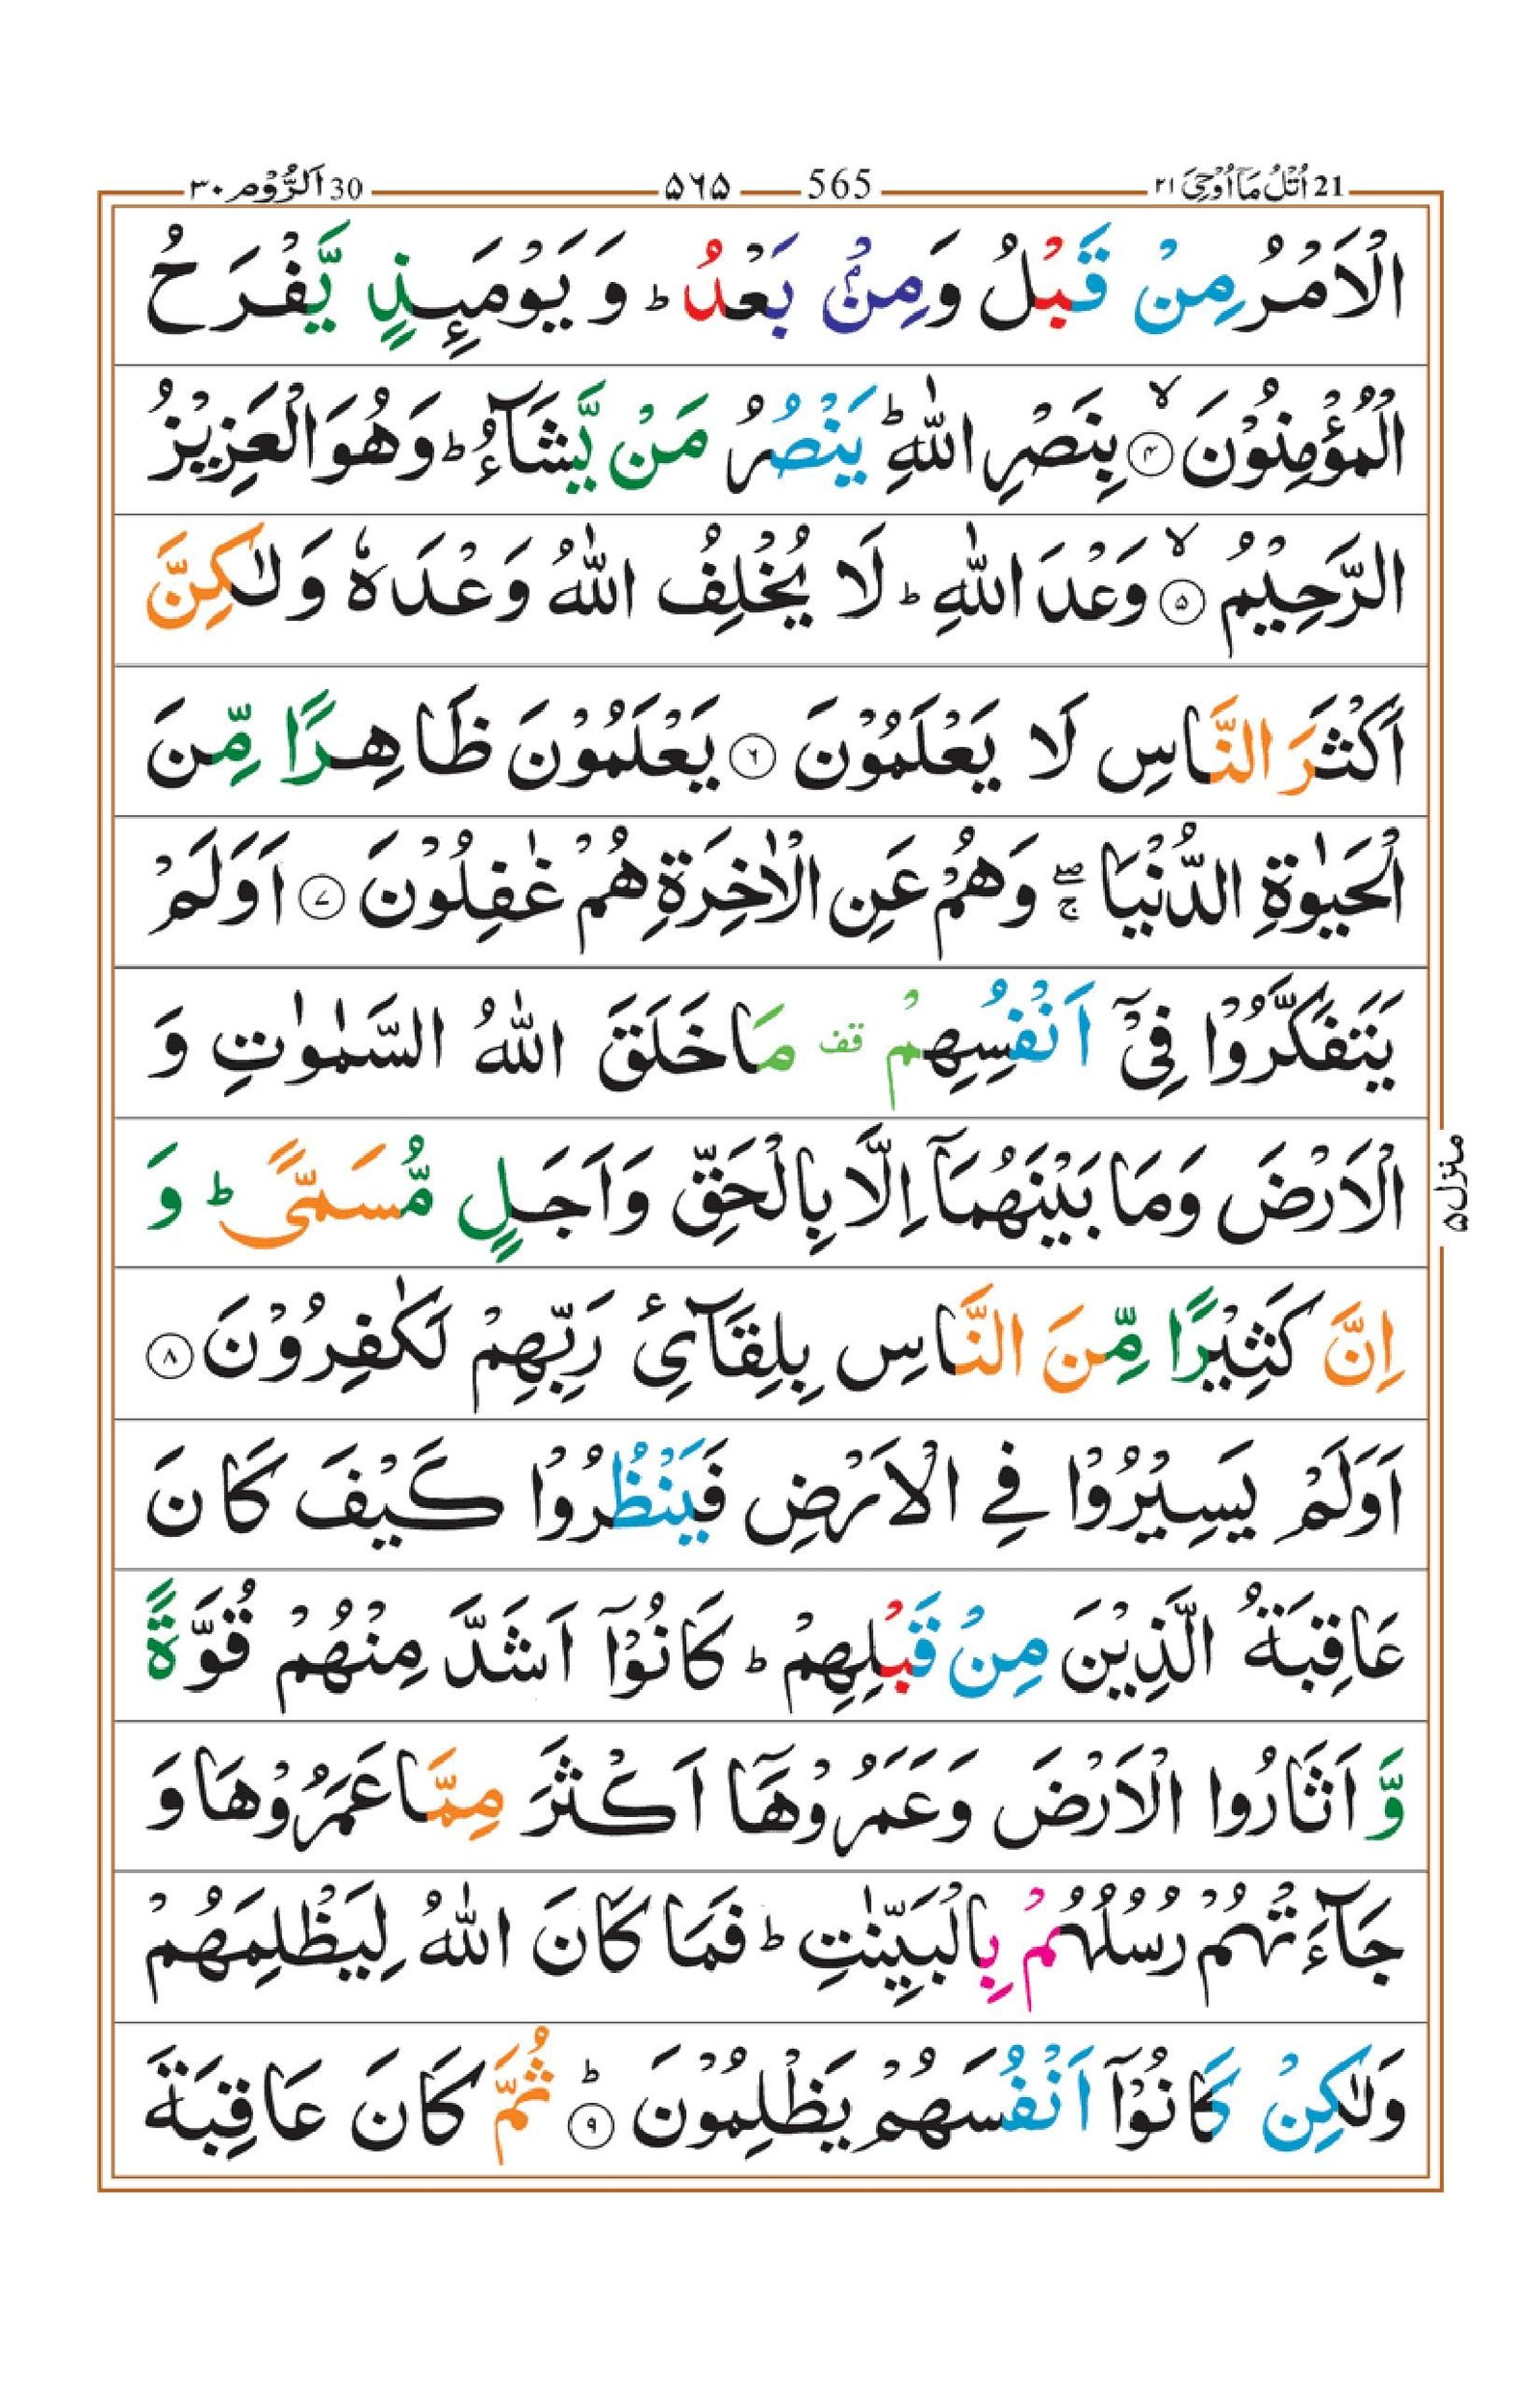 21 اُتْلُ مَآ اُوْحِیَ ۲۱
565 ۵۶۵
30 اَلرُّوْم ۳۰
الْاَمْرُ مِنْ قَبْلُ وَمِنْۢ بَعْدُ ؕ وَ یَوْمَىِٕذٍ یَّفْرَحُ
الْمُؤْمِنُوْنَ ۙ﴿۴﴾ بِنَصْرِ اللّٰهِ ؕ یَنْصُرُ مَنْ یَّشَآءُ ؕ وَهُوَ الْعَزِیْزُ
الرَّحِیْمُ ۙ﴿۵﴾ وَعْدَ اللّٰهِ ؕ لَا یُخْلِفُ اللّٰهُ وَعْدَهٗ وَلٰكِنَّ
اَكْثَرَ النَّاسِ لَا یَعْلَمُوْنَ ﴿۶﴾ یَعْلَمُوْنَ ظَاهِرًا مِّنَ
الْحَیٰوةِ الدُّنْیَا ۖۚ وَهُمْ عَنِ الْاٰخِرَةِ هُمْ غٰفِلُوْنَ ﴿۷﴾ اَوَلَمْ
یَتَفَكَّرُوْا فِیْۤ اَنْفُسِهِمْ قف مَا خَلَقَ اللّٰهُ السَّمٰوٰتِ وَ
الْاَرْضَ وَمَا بَیْنَهُمَاۤ اِلَّا بِالْحَقِّ وَاَجَلٍ مُّسَمًّی ؕ وَ
اِنَّ كَثِیْرًا مِّنَ النَّاسِ بِلِقَآئِ رَبِّهِمْ لَكٰفِرُوْنَ ﴿۸﴾
اَوَلَمْ یَسِیْرُوْا فِی الْاَرْضِ فَیَنْظُرُوْا كَیْفَ كَانَ
عَاقِبَةُ الَّذِیْنَ مِنْ قَبْلِهِمْ ؕ كَانُوْۤا اَشَدَّ مِنْهُمْ قُوَّةً
وَّ اَثَارُوا الْاَرْضَ وَعَمَرُوْهَاۤ اَكْثَرَ مِمَّا عَمَرُوْهَا وَ
جَآءَتْهُمْ رُسُلُهُمْ بِالْبَیِّنٰتِ ؕ فَمَا كَانَ اللّٰهُ لِیَظْلِمَهُمْ
وَلٰكِنْ كَانُوْۤا اَنْفُسَهُمْ یَظْلِمُوْنَ ؕ﴿۹﴾ ثُمَّ كَانَ عَاقِبَةَ
منزل ۵